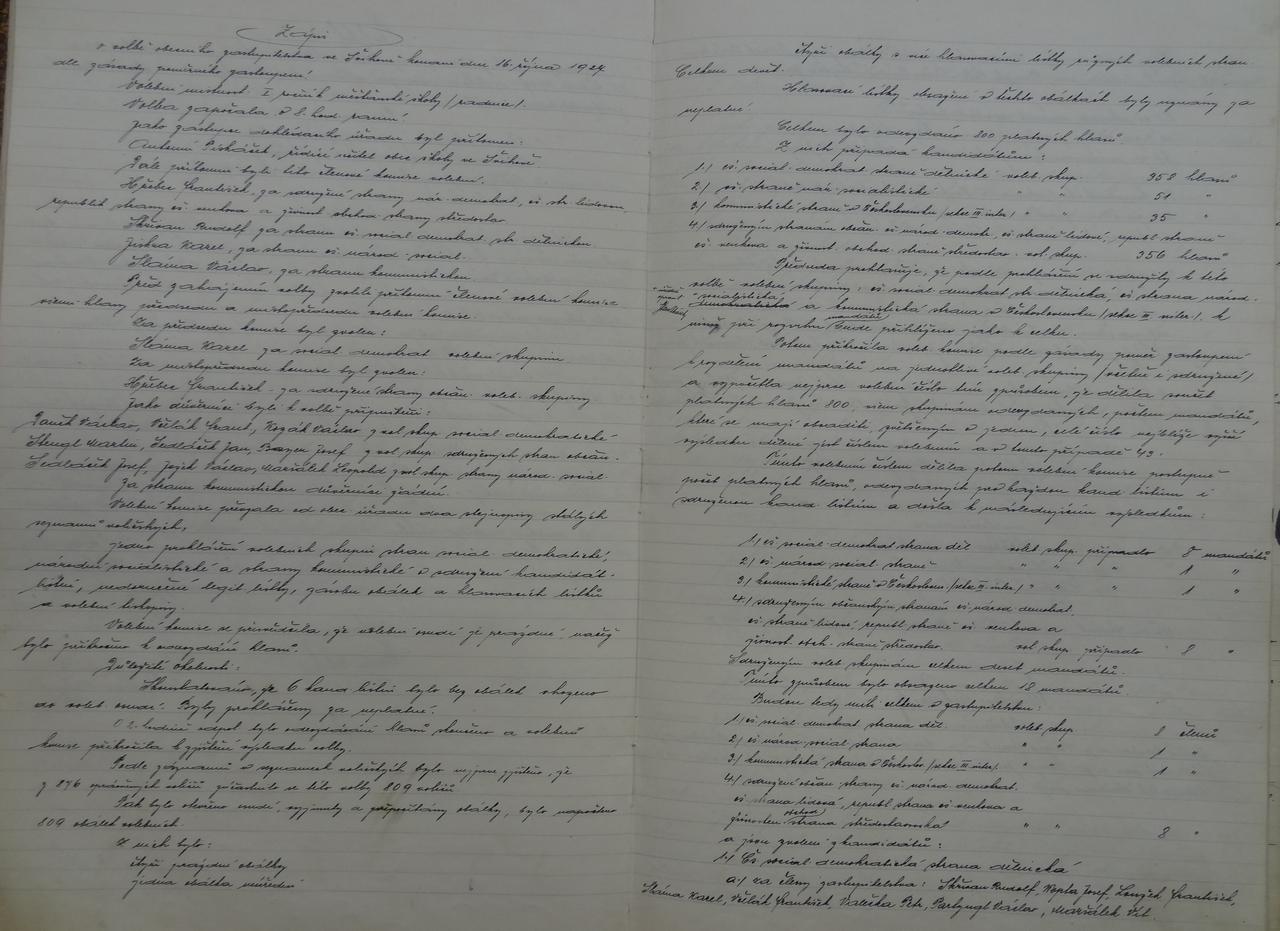 Zápis
o volbě obecního zastupitelstva ve konané dne 16. října 1927
dle zásady poměrného zastoupení.
Volební místnost: I ročník měšťanské školy /radnice/.
Volba započala v 8. hod. ranní.
Jako zástupce dohlédacího úřadu byl přítomen:
Antonín řídící učitel obec. školy ve
Dále přítomni byli tito členové komise volební:
Hřebec František, za sdružené strany nár. demokrat., čs. str. lidovou,
republik. strany čs. venkova a živnost. obchod. strany středostav.
Skřivan Rudolf za stranu čs. social. demokrat. str. dělnickou.
Jiskra Karel, za stranu čs. národ. social.
Sláma Václav, za stranu komunistickou
Před zahájením volby zvolili přítomní členové volební komise
všemi hlasy předsedu a místopředsedu volební komise.
Za předsedu komise byl zvolen:
Sláma Karel za social. demokrat. volební skupinu
Za místopředsedu komise byl zvolen:
Hřebec František za sdružené strany občan. volet. skupiny
Jako důvěrníci byli k volbě připuštěni:
Václav, Frant., Kozák Václav z vol. skup. social. demokratické
Štengl Martin, Sedláček Jan, Josef z vol. skup. sdružených stran občan.
Sedláček Josef, Václav, Maršálek Leopold z vol. skup. strany národ. social.
Za stranu komunistickou důvěrníci žádní.
Volební komise převzala od obec. úřadu dva stejnopisy stálých
seznamů voličských,
jedno prohlášení volebních skupin stran social. demokratické,
národní socialistické a strany komunistické o sdružení kandidát.
listin, nedoručené legit. lístky, zásobu obálek a hlasovacích lístků
a volební
Volební komise se přesvědčila, že volební osudí je prázdné, načež
bylo přikročeno k odevzdání hlasů.
Důležité okolnosti:
Konstatováno, že 6 kand. listin bylo bez obálek vhozeno
do volet. osudí. Byly prohlášeny za neplatné.
O 2. hodině odpol. bylo odevzdávání hlasů skončeno a volební
komise přikročila k zjištění výsledku volby.
Podle záznamů v seznamech voličských bylo nejprve zjištěno, že
z 896 oprávněných voličů zúčastnilo se této volby 809 voličů
Pak bylo otevřeno osudí, vyjmuty a přepočítány obálky, bylo napočteno
809 obálek volebních.
Z nich bylo:
čtyři prázdné obálky
jedna obálka neúřední
čtyři obálky s více hlasovacími lístky různých volebních stran.
Celkem devět.
Hlasovací lístky obsažené v těchto obálkách byly uznány za
neplatné.
Celkem bylo odevzdáno 800 platných hlasů.
Z nich připadá kandidátům:
1./ čs. social. demokrat. straně dělnické volet. skup. 358 hlasů
2./ čs. straně nár. socialistické " " 51 "
3./ komunistické straně v Československu /sekce III. inter./ " " 35 "
4./ sdruženým stranám občan. čs. národ. demokr., čs. straně lidové, republ. straně
čs. venkova a živnost. obchod. straně středostav. vol. skup. 356 hlasů
Předseda prohlašuje, že podle prohlášení se sdružily k této
volbě volební skupiny: čs. social. demokrat. str. dělnická, čs. strana národ.
socialistická
demokratická a komunistická strana v Československu /sekce III. inter./, k
mandátů
nimž při rozvrhu bude přihlíženo jako k celku.
Potom přikročila volet. komise podle zásady poměr. zastoupení
k rozdělení mandátů na jednotlivé volet. skupiny /všechny i sdružené/
a vypočetla nejprve volební číslo tím způsobem, že dělila součet
platných hlasů 800, všem skupinám odevzdaných, počtem mandátů,
které se mají obsaditi, zvětšeným o jeden, celé číslo nejblíže vyšší
výsledku dělení jest číslem volebním a v tomto případě 43.
Tímto volebním číslem dělila potom volební komise postupně
počet platných hlasů, odevzdaných pro každou kand. listinu i
sdruženou kand. listinu a došla k následujícím výsledkům:
1./ čs. social. demokrat. strana děl. volet. skup. připadlo 8 mandátů
2./ čs. národ. social. straně " " " 1 "
3./ komunistické straně v Českosloven. /sekce III. inter./ " " " 1 "
4./ sdruženým občanským stranám čs. národ. demokrat.
čs. straně lidové, republ. straně čs. venkova a
živnost. obch. straně středostav. vol. skup. připadlo 8 "
Sdruženým volet. skupinám celkem deset mandátů.
Tímto způsobem bylo obsazeno celkem 18 mandátů.
Budou tedy míti celkem v zastupitelstvu:
1./ čs. social. demokrat. strana děl. volet. skup. 8 členů
2./ čs. národ. social. strana " " 1 "
3./ komunistická strana v Českoslov. /sekce III. inter./ " " 1 "
4./ sdružení občan. strany čs. národ. demokrat.
čs. strana lidová, republ. strana čs. venkova a
obchod.
živnosten. strana středostavovská " " 8 "
a jsou zvoleni z kandidátů:
1./ Čs. social. demokratická strana dělnická
a./ za členy zastupitelstva: Skřivan Rudolf, Josef, František,
Sláma Karel, František, Valečka Petr, Václav, Maršálek Vít.